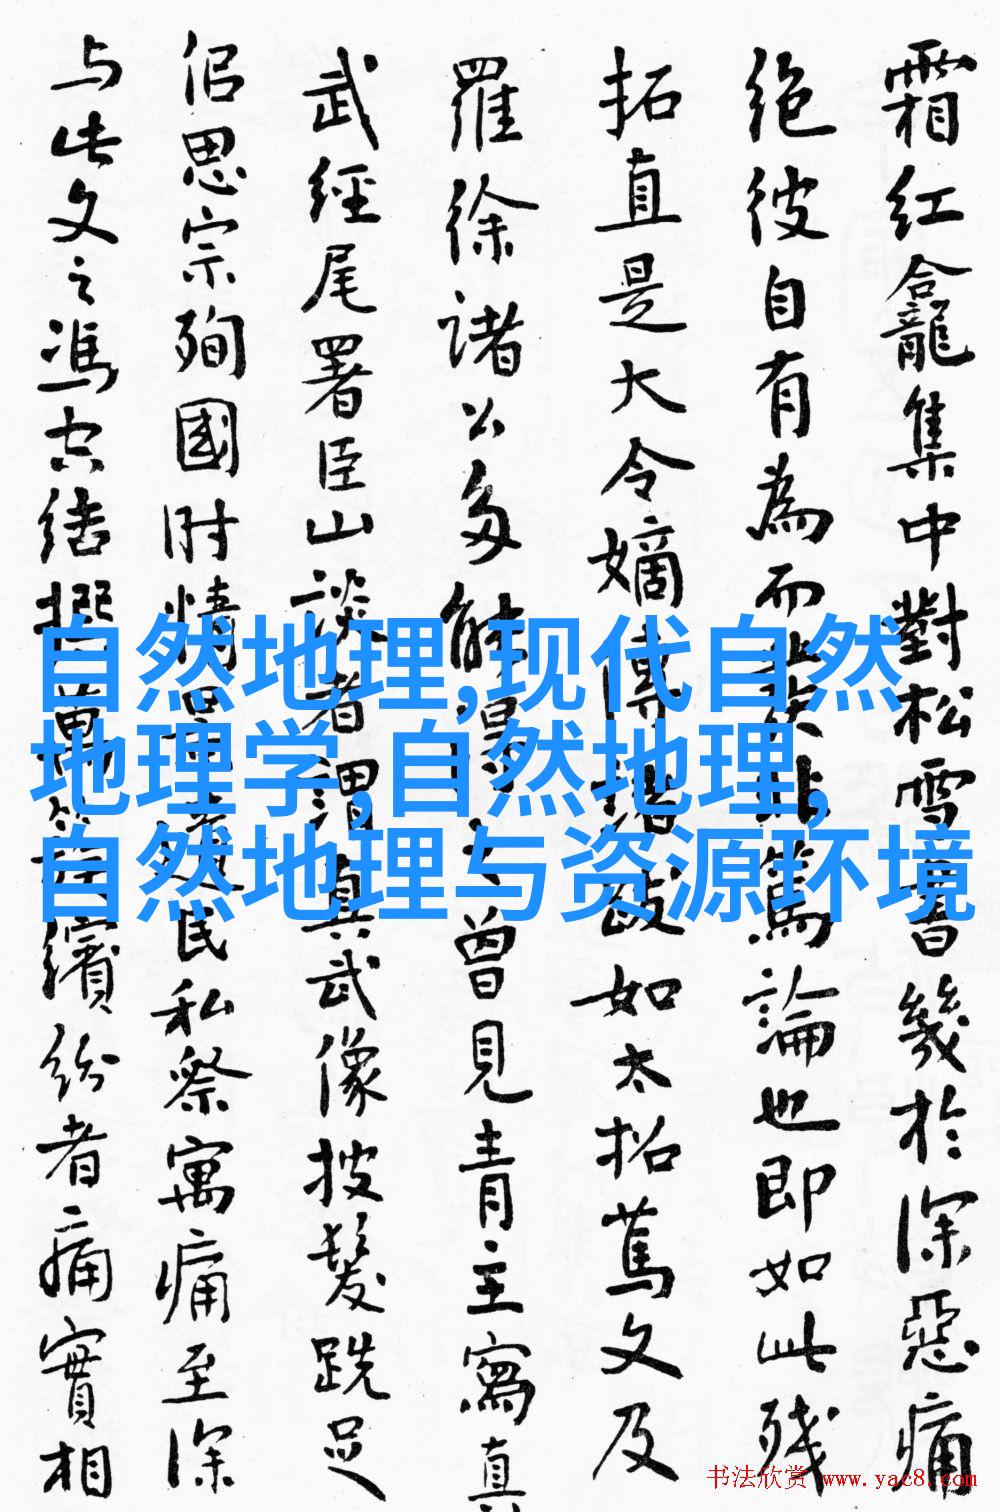 自然地理,现代自然
地理学,自然地理,
自然地理与资源环境
霜红龕集中對松雪書幾於深惡痛
绝彼自有為而矣非篤論也即如此残
拓直是大令嫡傳跋如太拓文及
羅徐諸公多能之曾見青主寫真
武經尾署臣山談者謂真武像披髮跣足
侣思宗殉國时情民私祭寓痛至深
与此文之馮空结撰萬繽纷者痛實相
书法欣赏 www.yac8.com